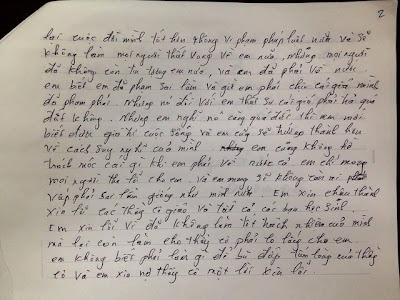 2
lại cuộc đời mình tốt hơn không vi phạm pháp luật nữa và sẽ
không làm mọi người thất vọng về em nữa, nhưng mọi người
đã không còn tin tưởng em nữa, và em đã phải về nước.
em biết em đã phạm sai lầm và giờ em phải chịu cái giá mình
đã phạm phải. Nhưng nó đối với em thật sự cái giá phải trả quá
đắt không. Nhưng em nghĩ nó cũng quá đắt thì em mới
biết được giá trị cuộc sống và em cũng sẽ trưởng thành hơn
về cách suy nghĩ của mình. em cũng không hề
trách móc cái gì khi em phải về nước cả em chỉ mong
mọi người tha lỗi cho em. Và em mong sẽ không còn ai
vấp phải sai lầm giống như mình nữa. Em xin chân thành
xin lỗi các thầy cô giáo và tất cả các bạn học sinh.
Em xin lỗi vì đã không làm tốt trách nhiệm của mình
mà lại còn làm cho thầy cô phải lo lắng cho em.
em không biết phải làm gì để bù đắp tấm lòng của thầy
cô và em xin nợ thầy cô một lời xin lỗi.